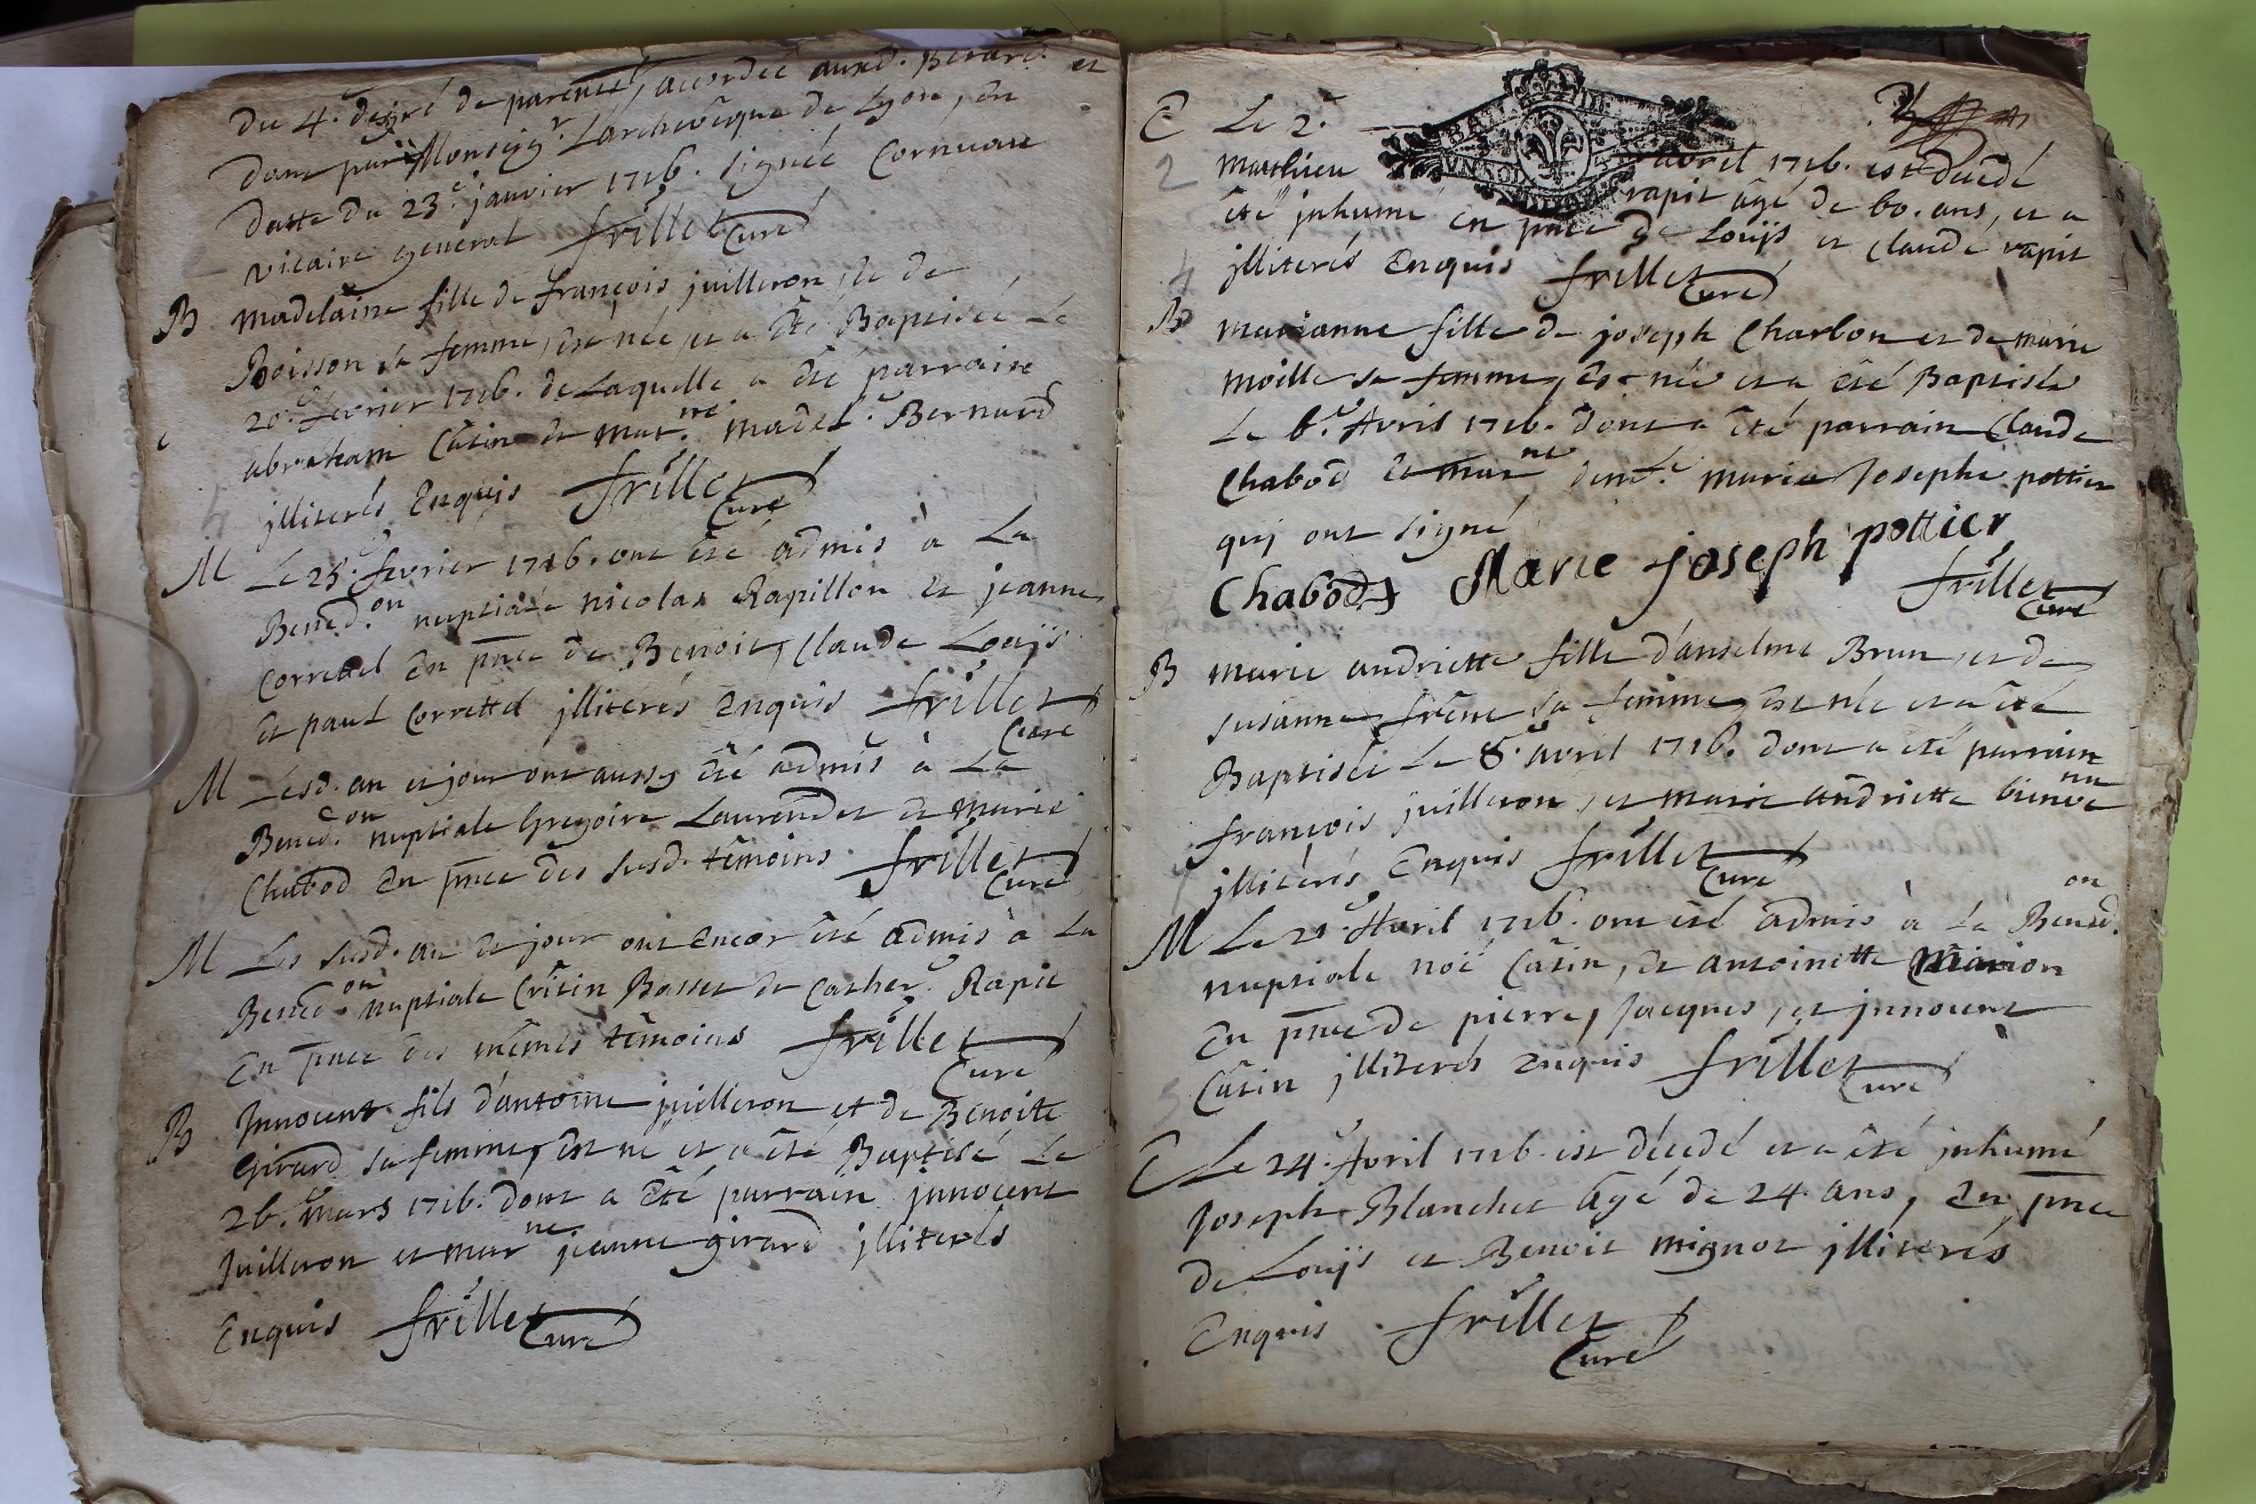 Du 4.e degré de parenté, accordée auxd. Berard et
dont par Monseigr. Larchevêque de Lyon, en
datte du 23.e janvier 1716. signée Cornuau
vicaire general frillet Curé
B Madelaine fille de françois juilleron, et de
Boisson sa femme, est née, et a été Baptisée Le
20.e fevrier 1716. de Laquelle a été parrain
abraham Câtin et mar.ne madel.e Bernard
jlliterés Enquis frillet Curé
M Le 25.e fevrier 1716. ont été admis à La
Bened.on nuptiale nicolas Rapillon et jeanne
Correttel en pnce de Benoit, Claude Louijs
et paul Correttel jlliterés enquis frillet Curé
M Lesd. an et jour ont aussy été admis à La
Bened.on nuptiale Gregoire Laurendet et Marie
Chabod en pnce des susd. témoins frillet Curé
M Les susd. an et jour ont encor été admis à La
Bened.on nuptiale Crîtin Basset et Cather.e Rapit
En pnce des mêmes témoins frillet Curé
B Jnnocent fils d'antoine juilleron et de Benoîte
Girard sa femme, est né et a été Baptisé Le
26.e Mars 1716. dont a été parrain jnnocent
Juilleron et mar.ne jeanne girard jlliterés
Enquis frillet Curé
E Le 2.e avril 1716. est décédé
2 Matthieu rapit âgé de 60. ans, et a
été jnhumé en pnce de Louijs et claude rapit
jlliterés Enquis frillet Curé
B Marianne fille de joseph Charbon et de marie
Moille sa femme, est née et a été Baptisée
Le 6.e Avril 1716. dont a été parrain Claude
Chabod et mar.ne dem.le marie Josephe pottier
quj ont signé
Chabod Marie joseph pottier frillet Curé
B Marie andriette fille d'anselme Brun, et de
susanne frêne sa femme, est née et a été
Baptisée Le 8.e avril 1716. dont a été parrain
françois juilleron, et marie andriette bienvenu
jlliterés Enquis frillet Curé
M Le 21.e Avril 1716. ont été admis à La Bened.on
nuptiale noë Câtin, et antoinette Marion
En pnce de pierre, Jacques, et jnnocent
Câtin jlliterés enquis frillet Curé
E Le 24.e Avril 1716. est décedé et a été jnhumé
Joseph Blanchet âgé de 24. ans, en pnce
de Louijs et Benoit mignot jlliterés
Enquis frillet Curé